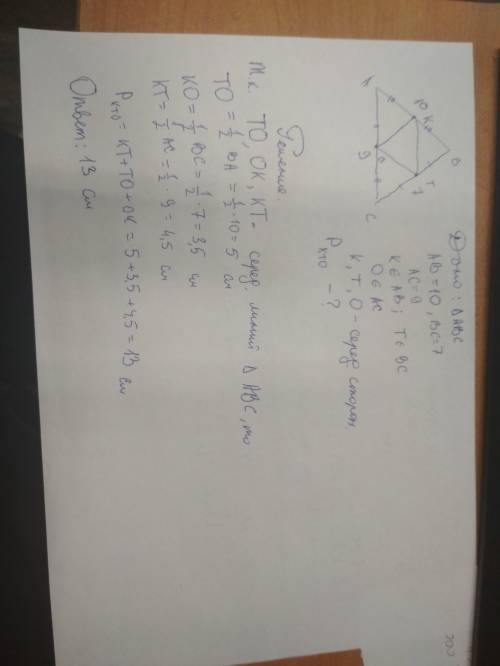 Дано: ΔABC
AB=10, BC=7
AC=9
K∈AB; T∈BC
O∈AC
K, T, O - серед сторон
P_KTO - ?
A
10
K
B
T
7
9
O
C
Решение.
Т.к. TO, OK, KT - серед линий Δ ABC, то
TO = 1/2 BA = 1/2 · 10 = 5 см
KO = 1/2 BC = 1/2 · 7 = 3,5 см
KT = 1/2 AC = 1/2 · 9 = 4,5 см
P_KTO = KT+TO+OK = 5+3,5+4,5 = 13 см
Ответ: 13 см